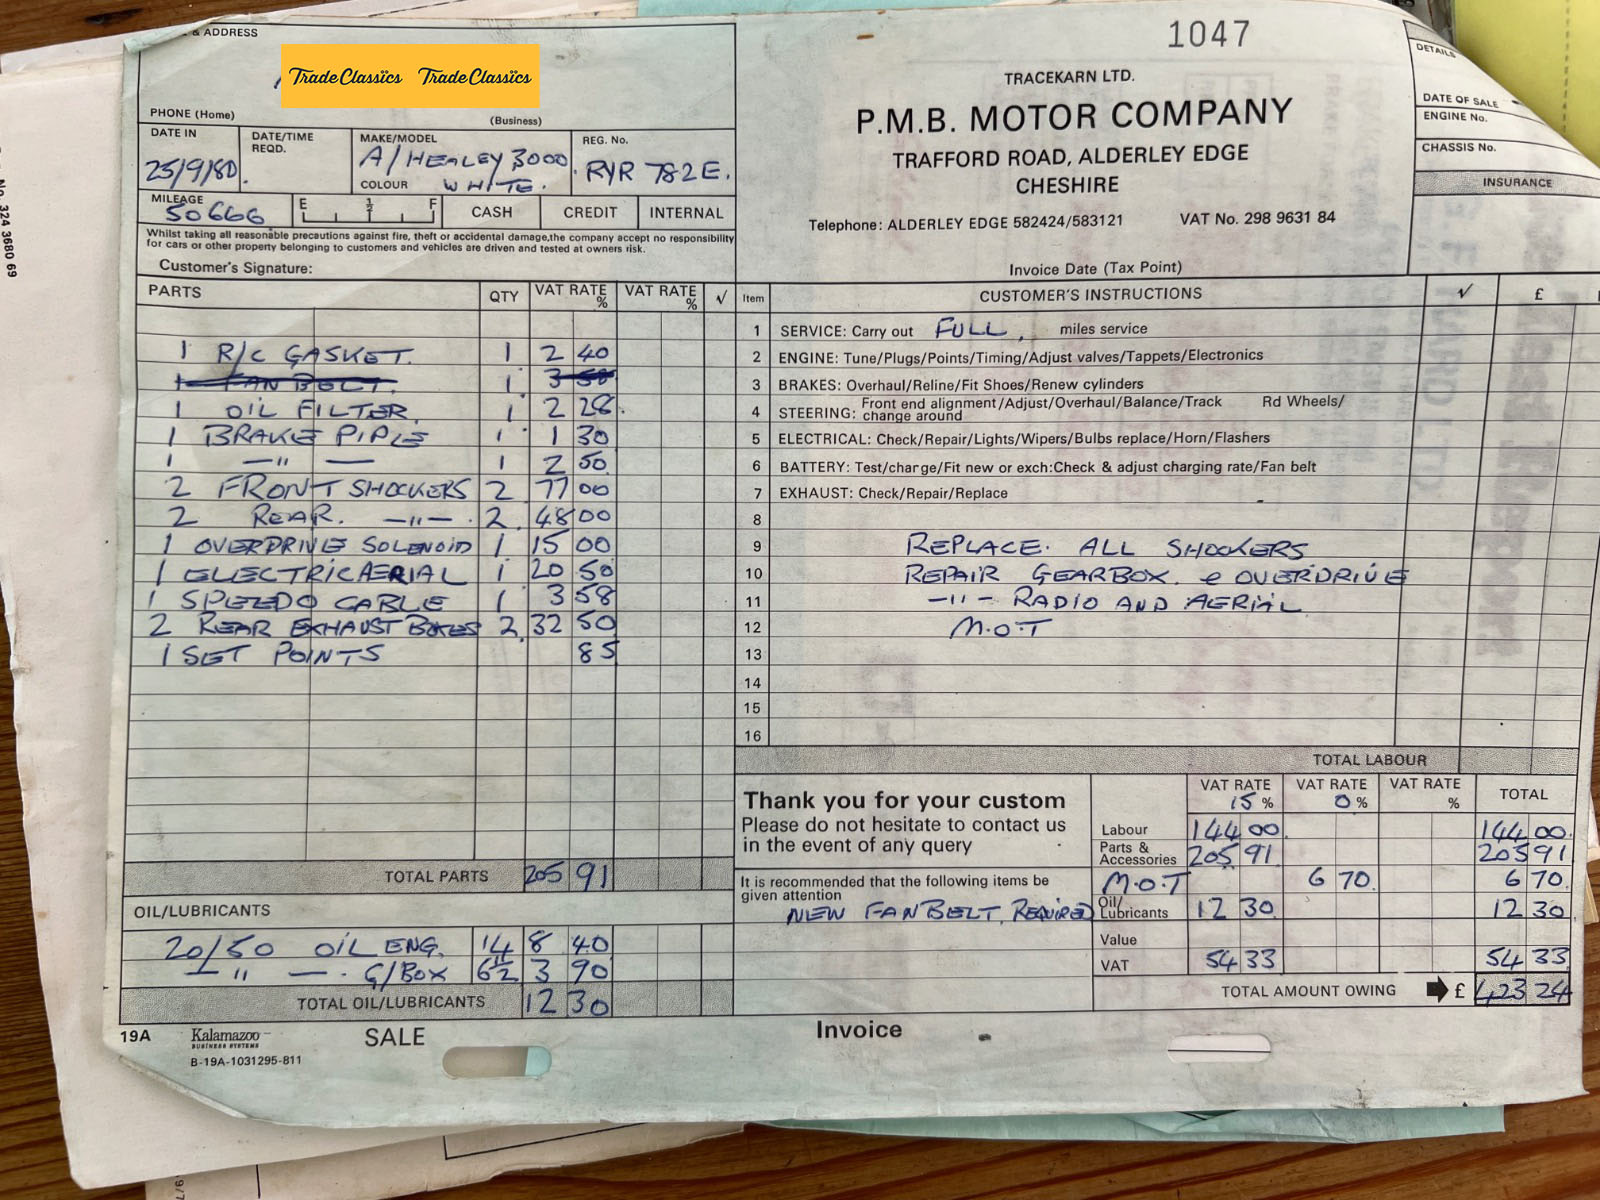 & ADDRESS
TradeClassics TradeClassics
PHONE (Home) (Business)
DATE IN DATE/TIME REQD. MAKE/MODEL REG. No.
25/9/80. A/HEALEY 3000. RYR 782E.
COLOUR WHITE.
MILEAGE 50666 E ½ F CASH CREDIT INTERNAL
Whilst taking all reasonable precautions against fire, theft or accidental damage,the company accept no responsibility
for cars or other property belonging to customers and vehicles are driven and tested at owners risk.
Customer's Signature:
1047
TRACEKARN LTD.
P.M.B. MOTOR COMPANY
TRAFFORD ROAD, ALDERLEY EDGE
CHESHIRE
Telephone: ALDERLEY EDGE 582424/583121 VAT No. 298 9631 84
Invoice Date (Tax Point)
DETAILS
DATE OF SALE
ENGINE No.
CHASSIS No.
INSURANCE
No. 324 3680 69
PARTS QTY VAT RATE % VAT RATE % √
1 R/C GASKET. 1 2 40
1 FAN BELT. 1 3 50
1 OIL FILTER. 1 2 28.
1 BRAKE PIPLE 1 1 30
1 —"— 1 2 50
2 FRONT SHOCKERS 2 77 00
2 REAR. —"—. 2. 48 00
1 OVERDRIVE SOLENOID 1 15 00
1 ELECTRIC AERIAL 1 20 50
1 SPEEDO CABLE 1 3 58
2 REAR EXHAUST BOXES 2. 32 50
1 SET POINTS 85
TOTAL PARTS 205 91
OIL/LUBRICANTS
20/50 OIL ENG. 14 8 40
—"—. G/BOX 6½ 3 90
TOTAL OIL/LUBRICANTS 12 30
Item CUSTOMER'S INSTRUCTIONS √ £
1 SERVICE: Carry out FULL, miles service
2 ENGINE: Tune/Plugs/Points/Timing/Adjust valves/Tappets/Electronics
3 BRAKES: Overhaul/Reline/Fit Shoes/Renew cylinders
4 STEERING: Front end alignment/Adjust/Overhaul/Balance/Track Rd Wheels/
change around
5 ELECTRICAL: Check/Repair/Lights/Wipers/Bulbs replace/Horn/Flashers
6 BATTERY: Test/charge/Fit new or exch:Check & adjust charging rate/Fan belt
7 EXHAUST: Check/Repair/Replace
8
9 REPLACE. ALL SHOCKERS
10 REPAIR GEARBOX. e OVERDRIVE
11 —"— RADIO AND AERIAL
12 M.O.T
13
14
15
16
TOTAL LABOUR
Thank you for your custom
Please do not hesitate to contact us
in the event of any query
It is recommended that the following items be
given attention
NEW FANBELT. REQUIRED
VAT RATE 15 % VAT RATE 0 % VAT RATE % TOTAL
Labour 144 00. 144 00.
Parts & Accessories 205 91 205 91
M.O.T 6 70. 6 70
Oil/ Lubricants 12 30 12 30
Value
VAT 54 33 54 33
TOTAL AMOUNT OWING £ 423 24
19A Kalamazoo BUSINESS SYSTEMS SALE Invoice
B-19A-1031295-811